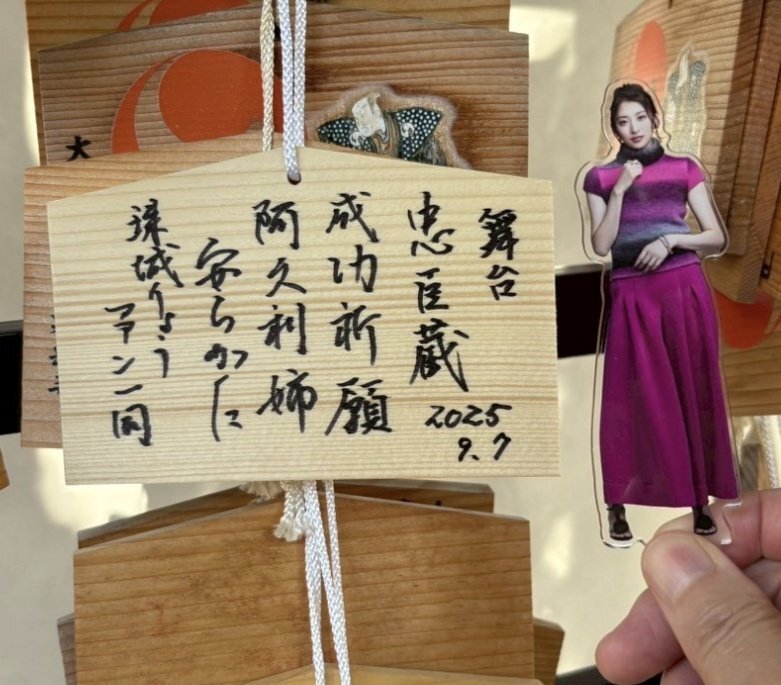 舞台
忠臣蔵
2025
9.7
成功祈願
阿久利姉
安らかに
珠城りょう
ファン一同
大